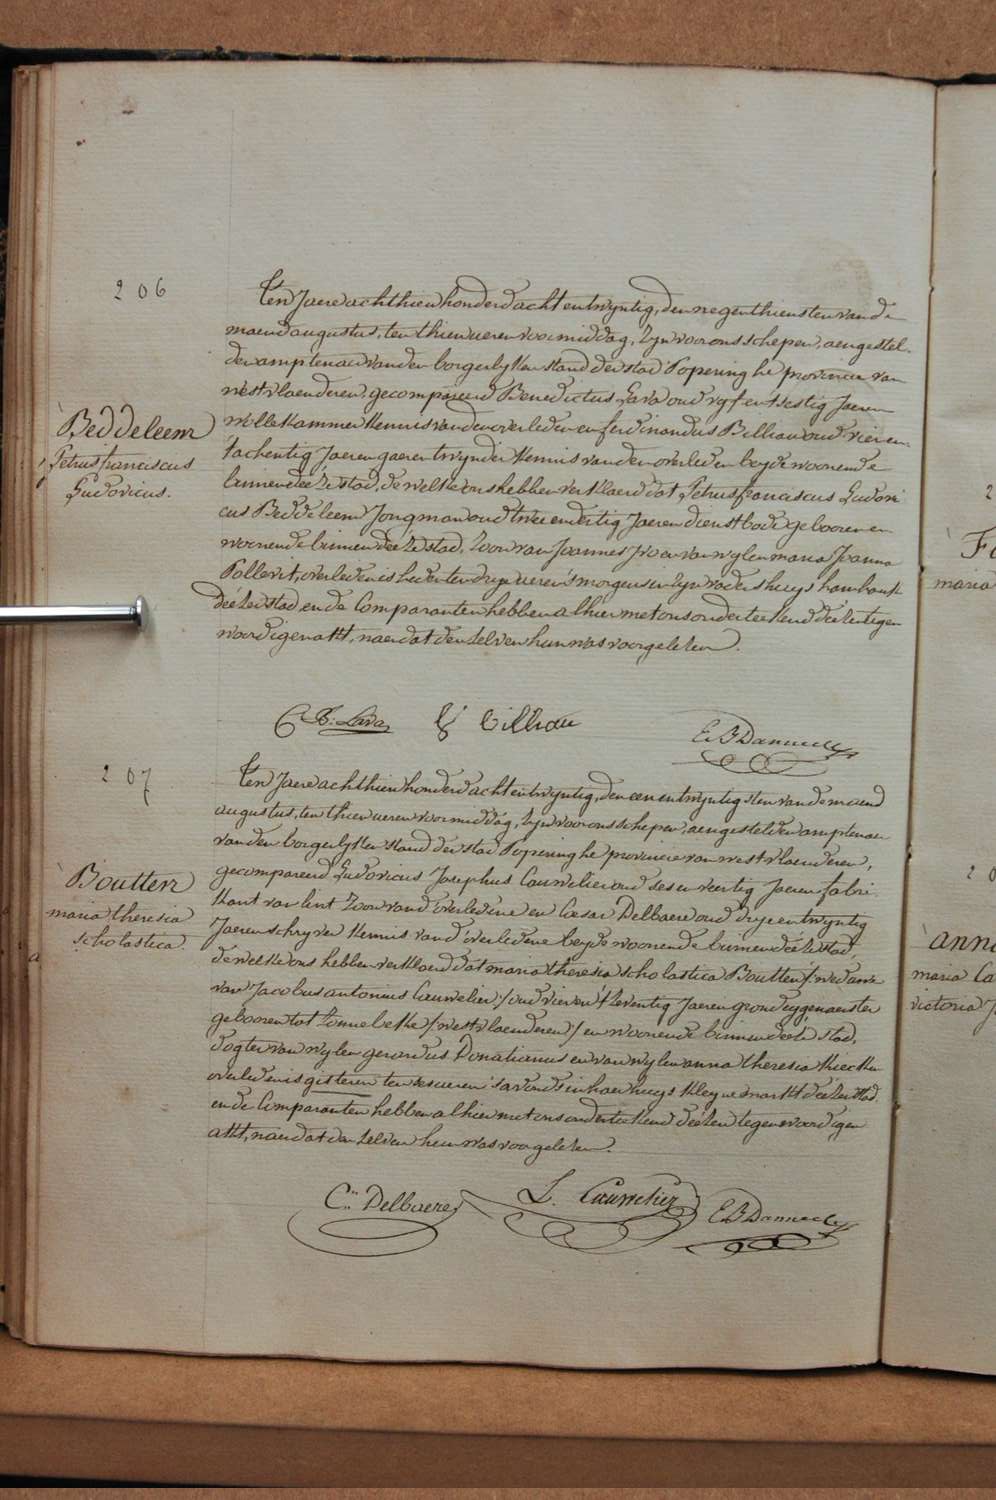 206
Beddeleem
Petrus franciscus
Ludovicus.
Ten Jaere achthien honderd acht en twyntig, den negenthiensten van de
maend augustus, ten thien ueren voormiddag, Zyn voor ons schepen, aengestel-
den amptenaer van den borgerlyken stand der stad Poperinghe provincie van
westvlaenderen, gecompareerd Benedictus Lava oud vyf en sestig Jaeren
wollekammer Kennis van den overledenen ferdinandus Billiau oud vier en
tachentig Jaeren gaerentwynder Kennis van den overleden beyde woonende
binnen deeze stad, de welke ons hebben verklaerd dat Petrus franciscus Ludovi
cus Beddeleem Jongman oud twee en dertig Jaeren dienstbode gebooren en
woonende binnen deeze stad, Zoon van Joannes en van wylen maria Joanna
Pollevit, overleden is heden ten dry ueren 's morgens in Zyn vaders huys
deezer stad, en de Comparanten hebben alhier met ons onderteekend deezen tegen
woordigen akt, naer dat den zelven hun was voorgelezen.
B: Lava
Billiau
207
Boutten
maria theresia
scholastica.
Ten Jaere achthien honderd acht en twyntig, den een en twyntigsten van de maend
augustus, ten thien ueren voormiddag, Zyn voor ons schepen, aengestelden amptenaer
van den borgerlyken stand der stad Poperinghe provincie van westvlaenderen,
gecompareerd Ludovicus Josephus Cauwelier oud ses en veertig Jaeren fabri
kant van lint Zoon van d'overledene en Cesar Delbaere oud drye en twyntig
Jaeren schryver Kennis van d'overledene beyde woonende binnen deeze stad,
de welke ons hebben verklaerd dat maria theresia scholastica Boutten / weduwe
van Jacobus antonius Cauwelier / oud vier en t'zeventig Jaeren grondeygenaerster
gebooren tot Zonnebeke / westvlaenderen / en woonende binnen deeze stad,
dogter van wylen gerardus Donatianus en van wylen anna theresia
overleden is gisteren ten ses ueren 's avonds in haer huys kleyne markt deezer stad.
en de Comparanten hebben alhier met ons onderteekend deezen tegenwoordigen
akt, naer dat den zelven hun was voorgelezen.
C: Delbaere
L. Cauwelier
2
maria
2 0
anna
maria Ca
victoria J